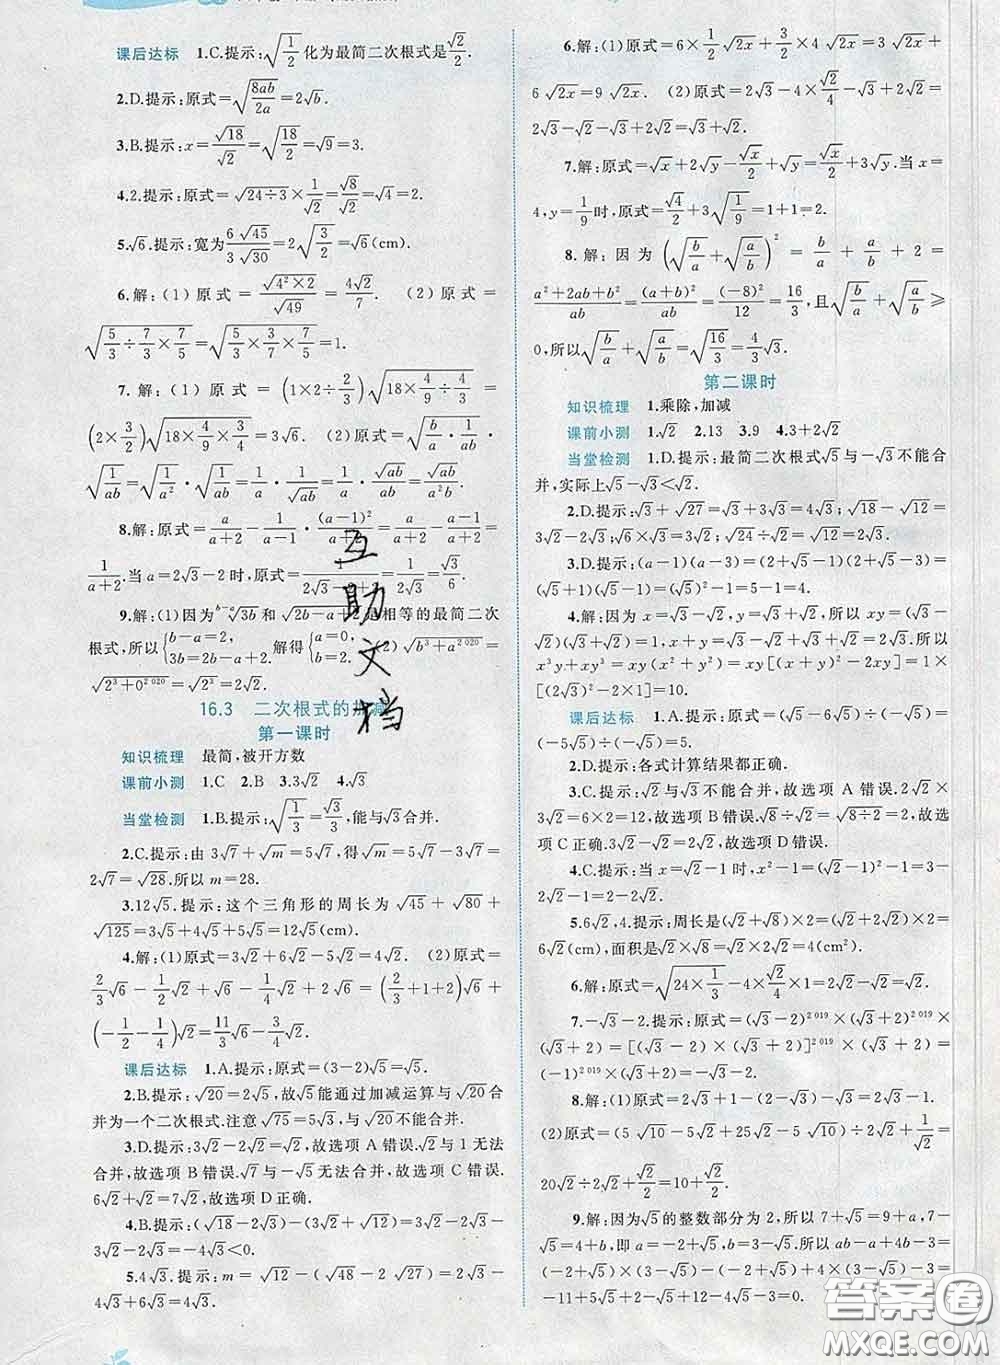 课后达标 1.C.提示:√(1/2)化为最简二次根式是√2/2.
2.D.提示:原式=√(8ab/2a)=2√b.
3.B.提示:x=√18/√2=√(18/2)=√9=3.
4.2.提示:原式=√(24÷3)×1/√2=√8/√2=√4=2.
5.√6.提示:宽为6√45/3√30=2√(3/2)=√6(cm).
6.解:(1)原式=√(4²×2)/√49=4√2/7. (2)原式=
√(5/3÷7/3×7/5)=√(5/3×3/7×7/5)=1.
7.解:(1)原式=(1×2÷2/3)√(18×4/9÷4/3)=
(2×3/2)√(18×4/9×3/4)=3√6. (2)原式=√(b/a·1/ab)·
√(1/ab)=√(1/a²)·√(1/ab)=1/a·1/√ab=1/a·√ab/ab=√ab/a²b.
8.解:原式=a/(a+2)-1/(a-1)·(a-1)²/(a+2)=a/(a+2)-(a-1)/(a+2)=
1/(a+2).当a=2√3-2时,原式=1/(2√3-2+2)=1/2√3=√3/6.
9.解:(1)因为 ᵇ⁻ᵃ√3b和√(2b-a+2)是相等的最简二次
根式,所以{b-a=2, 3b=2b-a+2, 解得{a=0, b=2. (2)√(b³+a²⁰²⁰)
=√(2³+0²⁰²⁰)=√2³=2√2.
16.3 二次根式的加减
第一课时
知识梳理 最简,被开方数
课前小测 1.C 2.B 3.3√2 4.√3
当堂检测 1.B.提示:√(1/3)=√3/3,能与√3合并.
2.C.提示:由3√7+√m=5√7,得√m=5√7-3√7=
2√7=√28.所以m=28.
3.12√5.提示:这个三角形的周长为√45+√80+
√125=3√5+4√5+5√5=12√5(cm).
4.解:(1)原式=3√2+6√2-5√2=4√2. (2)原式=
2/3√6-1/2√2+√6-1/4√2+2√6=(2/3+1+2)√6+
(-1/2-1/4)√2=11/3√6-3/4√2.
课后达标 1.A.提示:原式=(3-2)√5=√5.
2.B.提示:√20=2√5,故√5能通过加减运算与√20合
并为一个二次根式.注意√75=5√3,与√20不能合并.
3.D.提示:3√2-2√2=√2,故选项A错误.√2与1无法
合并,故选项B错误.√2与-√5无法合并,故选项C错误.
6√2+√2=7√2,故选项D正确.
4.B.提示:(√18-2√3)-(3√2+√12)=3√2-2√3-
3√2-2√3=-4√3<0.
5.4√3.提示:m=√12-(√48-2√27)=2√3-4√3
+6√3=4√3.
6.解:(1)原式=6×1/2√2x+3/2×4√2x=3√2x+
6√2x=9√2x. (2)原式=2√3-4×√2/4-√3+2√2=
2√3-√2-√3+2√2=√3+√2.
7.解:原式=√x+2√y-√x/2+√y=√x/2+3√y.当x=
4,y=1/9时,原式=√4/2+3√(1/9)=1+1=2.
8.解:因为(√(b/a)+√(a/b))²=b/a+a/b+2=
(a²+2ab+b²)/ab=(a+b)²/ab=(-8)²/12=16/3,且√(b/a)+√(a/b)≥
0,所以√(b/a)+√(a/b)=√(16/3)=4/3√3.
第二课时
知识梳理 1.乘除,加减
课前小测 1.√2 2.13 3.9 4.3+2√2
当堂检测 1.D.提示:最简二次根式√5与-√3不能合
并,实际上√5-√3<√2.
2.D.提示:√3+√27=√3+3√3=4√3;√18-√12=
3√2-2√3;√6×√2=√12=2√3;√24÷√2=√12=2√3.
3.D.提示:(a-1)(a-3)=(2+√5-1)(2+√5-3)=
(√5+1)(√5-1)=5-1=4.
4.解:因为x=√3-√2,y=√3+√2,所以xy=(√3-
√2)(√3+√2)=1,x+y=√3-√2+√3+√2=2√3.所以
x³y+xy³=xy(x²+y²)=xy[(x+y)²-2xy]=1×
[(2√3)²-2×1]=10.
课后达标 1.A.提示:原式=(√5-6√5)÷(-√5)=
(-5√5)÷(-√5)=5.
2.D.提示:各式计算结果都正确.
3.C.提示:√2与√3不能合并,故选项A错误.2√2×
3√2=6×2=12,故选项B错误.√8÷√2=√(8÷2)=2,故选项
C正确.3√2-√2=2√2,故选项D错误.
4.C.提示:当x=√2-1时,x²-1=(√2-1)²-1=3-
2√2-1=2-2√2.
5.6√2,4.提示:周长是(√2+√8)×2=(√2+2√2)×2=
6√2(cm),面积是√2×√8=√2×2√2=4(cm²).
6.解:原式=√(24×1/3)-4×√2/4×1=2√2-√2=√2.
7.-√3-2.提示:原式=(√3-2)²⁰¹⁹×(√3+2)²⁰¹⁹
×(√3+2)=[(√3-2)×(√3+2)]²⁰¹⁹×(√3+2)=
(-1)²⁰¹⁹×(√3+2)=-√3-2.
8.解:(1)原式=4√3-2√3+2-3=2√3-1.
(2)原式=(5√10-5√2+25√2-5√10)÷2√2+1/√2=
20√2÷2√2+√2/2=10+√2/2.
9.解:因为√5的整数部分为2,所以7+√5=9+a,7-
√5=4+b,即a=-2+√5,b=3-√5.所以ab-a+4b-3=
(-2+√5)×(3-√5)-(-2+√5)+4×(3-√5)-3=
-11+5√5+2-√5+12-4√5-3=0.
互助文档
答案圈
MXQE.COM